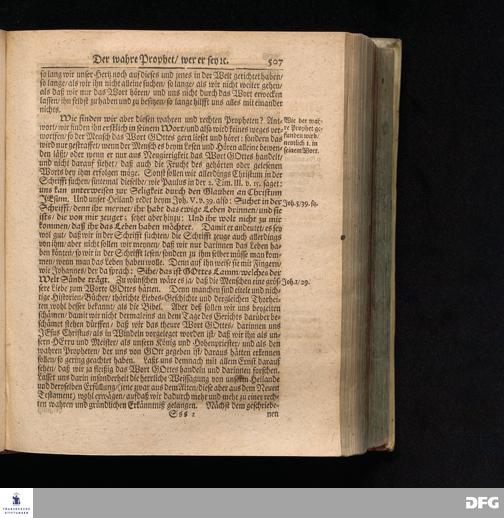 Der wahre Prophet/ wer er sey ꝛc. 507
so lang wir unser Hertz noch auf dieses und jenes in der Welt gerichtet haben/
so lange/ als wir ihn nicht alleine suchen/ so lange/ als wir nicht weiter gehen/
als daß wir nur das Wort hören/ und uns nicht durch das Wort erwecken
lassen/ ihn selbst zu haben und zu besitzen/ so lange hilfft uns alles mit einander
nichts.
Wie finden wir aber diesen wahren und rechten Propheten? Ant-
wort/ wir finden ihn erstlich in seinem Wort/ und also wird keines weges ver-
worffen/ so der Mensch das Wort GOttes gern lieset und höret: sondern das
wird nur gestraffet/ wenn der Mensch es beym Lesen und Hören alleine bewen-
den läßt/ oder wenn er nur aus Neugierigkeit das Wort GOttes handelt/
und nicht darauf siehet/ daß auch die Frucht des gehörten oder gelesenen
Worts bey ihm erfolgen möge. Sonst sollen wir allerdings Christum in der
Schrifft suchen/ sintemal dieselbe/ wie Paulus in der 2. Tim. III. v. 15. saget:
uns kan unterweisen zur Seligkeit durch den Glauben an Christum
JEsum. Und unser Heiland redet beym Joh. V. v. 39. also: Suchet in der
Schrifft/ denn ihr meynet/ ihr habt das ewige Leben drinnen/ und sie
ists/ die von mir zeuget; setzet aber hinzu: Und ihr wolt nicht zu mir
kommen/ daß ihr das Leben haben möchtet. Damit er andeutet/ es sey
wol gut/ daß wir in der Schrifft suchten/ die Schrifft zeuge auch allerdings
von ihm/ aber nicht sollen wir meynen/ daß wir nur darinnen das Leben ha-
ben könten/ so wir in der Schrifft lesen/ sondern zu ihm selber müsse man kom-
men/ wenn man das Leben haben wolle. Denn auf ihn weise sie mit Fingern/
wie Johannes/ der da sprach: Sihe/ das ist GOttes Lamm/ welches der
Welt Sünde trägt. Zu wünschen wäre es ja/ daß die Menschen eine grös-
sere Liebe zum Worte GOttes hätten. Denn manchen sind eitele und nich-
tige Historien-Bücher/ thörichte Liebes-Geschichte und dergleichen Thorhei-
ten wohl besser bekannt/ als die Bibel. Aber deß sollen wir uns bergeiten
schämen/ damit wir nicht dermaleins an dem Tage des Gerichts darüber be-
schämet stehen dürffen/ daß wir das theure Wort GOttes/ darinnen uns
JEsus Christus/ als in Windeln vorgeleget worden ist/ daß wir ihn als un-
sern HErrn und Meister/ als unsern König und Hohenpriester/ und als den
wahren Propheten/ der uns von GOtt gegeben ist/ daraus hätten erkennen
sollen/ so gering geachtet haben. Laßt uns demnach mit allem Ernst darauf
sehen/ daß wir ja fleißig das Wort GOttes handeln und darinnen forschen.
Lasset uns darin insonderheit die herrliche Weissagung von unserm Heilande
und derselben Erfüllung/ (jene zwar aus dem Alten/ diese aber aus dem Neuen
Testament) wohl erwägen/ auf daß wir dadurch mehr und mehr zu einer rech-
ten wahren und gründlichen Erkänntniß gelangen. Nächst dem geschriebe-
Sss 2 nen
Wie der wah-
re Prophet ge-
funden wird/
nemlich 1. in
seinem Wort.
Joh. 5/39. sq.
Joh. 1/29.
FRANCKESCHE
STIFTUNGEN
DFG